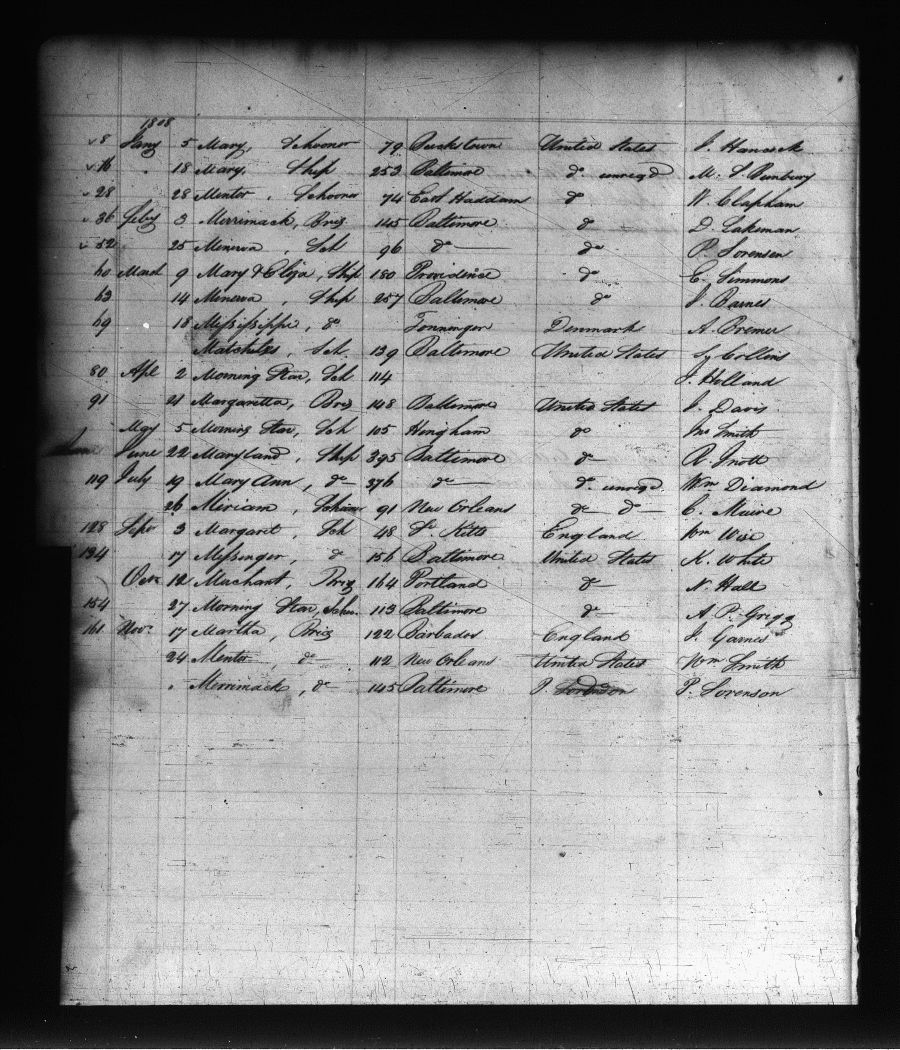 1808
8 Jany 5 Mary, Schooner 79 Buckstown United States J. Hancock
16 18 Mary, Ship 252 Baltimore do unregd M. S. Bunbury
28 28 Mentor, Schooner 74 East Haddam do W. Clapham
36 Feby 3 Merrimack, Brig 145 Baltimore do D. Lakeman
52 25 Minerva, Sch 96 do do P. Sorensen
60 March 9 Mary & Eliza, Ship 180 Providence do C. Simmons
63 14 Minerva, Ship 257 Baltimore do J. Barnes
69 18 Mississippi, do Tonningen Denmark A. Bremer
Matchless, Sch 139 Baltimore United States Sy Collins
80 Apl 2 Morning Star, Sch 114 J. Holland
91 21 Margaretta, Brig 148 Baltimore United States J. Davis
May 5 Morning Star, Sch 105 Hingham do Jno Smith
June 22 Maryland, Ship 395 Baltimore do R. Knott
119 July 19 Mary Ann, do 376 do do unregd Wm Diamond
26 Miriam, Schooner 91 New Orleans do do C. Muire
128 Sepr 3 Margaret, Sch 48 St Kitts England Wm Wise
134 17 Messenger, do 156 Baltimore United States K. White
Octr 12 Machant, Brig 164 Portland do N. Hall
154 27 Morning Star, Schr 113 Baltimore do A. P. Gregg
161 Novr 17 Martha, Brig 122 Barbados England J. Garnes
24 Mentor, do 112 New Orleans United States Wm Smith
Merrimack, do 145 Baltimore P. Sorenson P. Sorenson